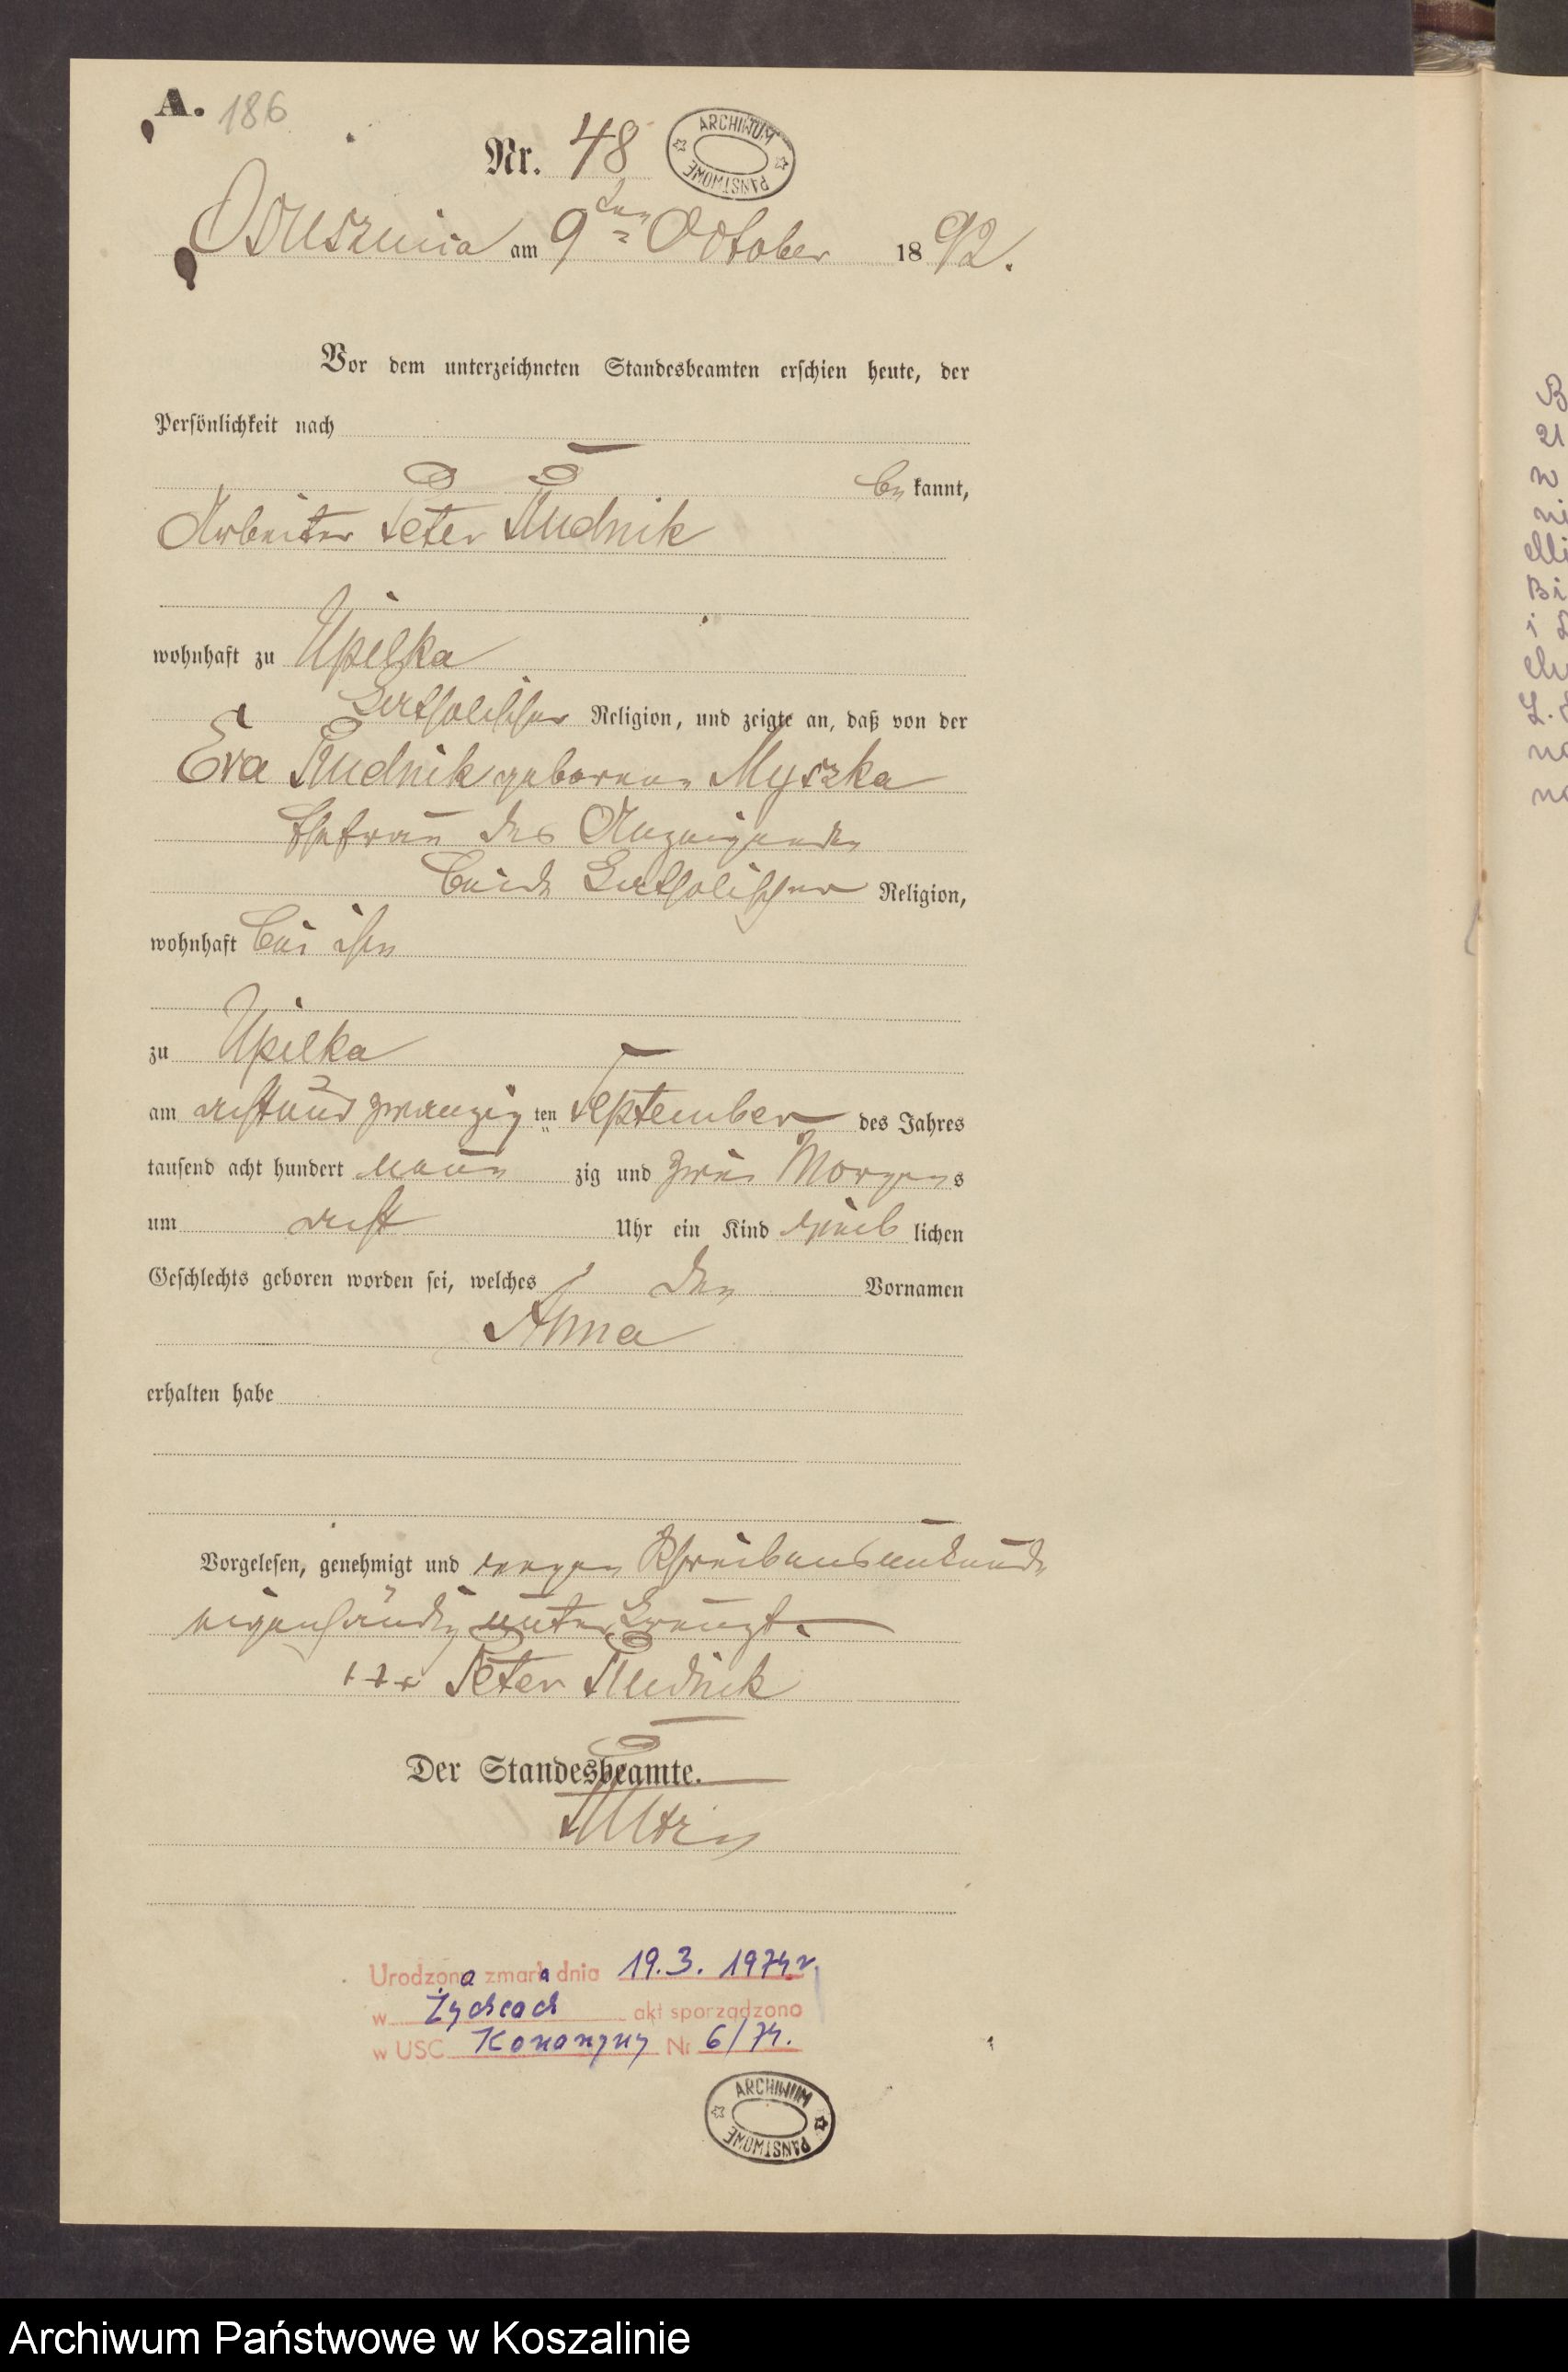 A. 186
Nr. 48
ARCHIWUM PAŃSTWOWE
Osusznica am 9ten October 1892.
Vor dem unterzeichneten Standesbeamten erschien heute, der
Persönlichkeit nach
be kannt,
Arbeiter Peter Rudnik
wohnhaft zu Upilka
katholischer Religion, und zeigte an, daß von der
Eva Rudnik geborenen Myszka
Ehefrau des Anzeigenden
beide katholischer Religion,
wohnhaft bei ihm
zu Upilka
am achtundzwanzig ten September des Jahres
tausend acht hundert neun zig und zwei Morgens
um acht Uhr ein Kind weib lichen
Geschlechts geboren worden sei, welches den Vornamen
Anna
erhalten habe
Vorgelesen, genehmigt und wegen Schreibensunkunde
eigenhändig unterkreuzt.
+++ Peter Rudnik
Der Standesbeamte.
Urodzona zmarła dnia 19.3.1974r.
w Żychcach akt sporządzono
w USC Konarzyny Nr 6/74.
ARCHIWUM PAŃSTWOWE
Archiwum Państwowe w Koszalinie